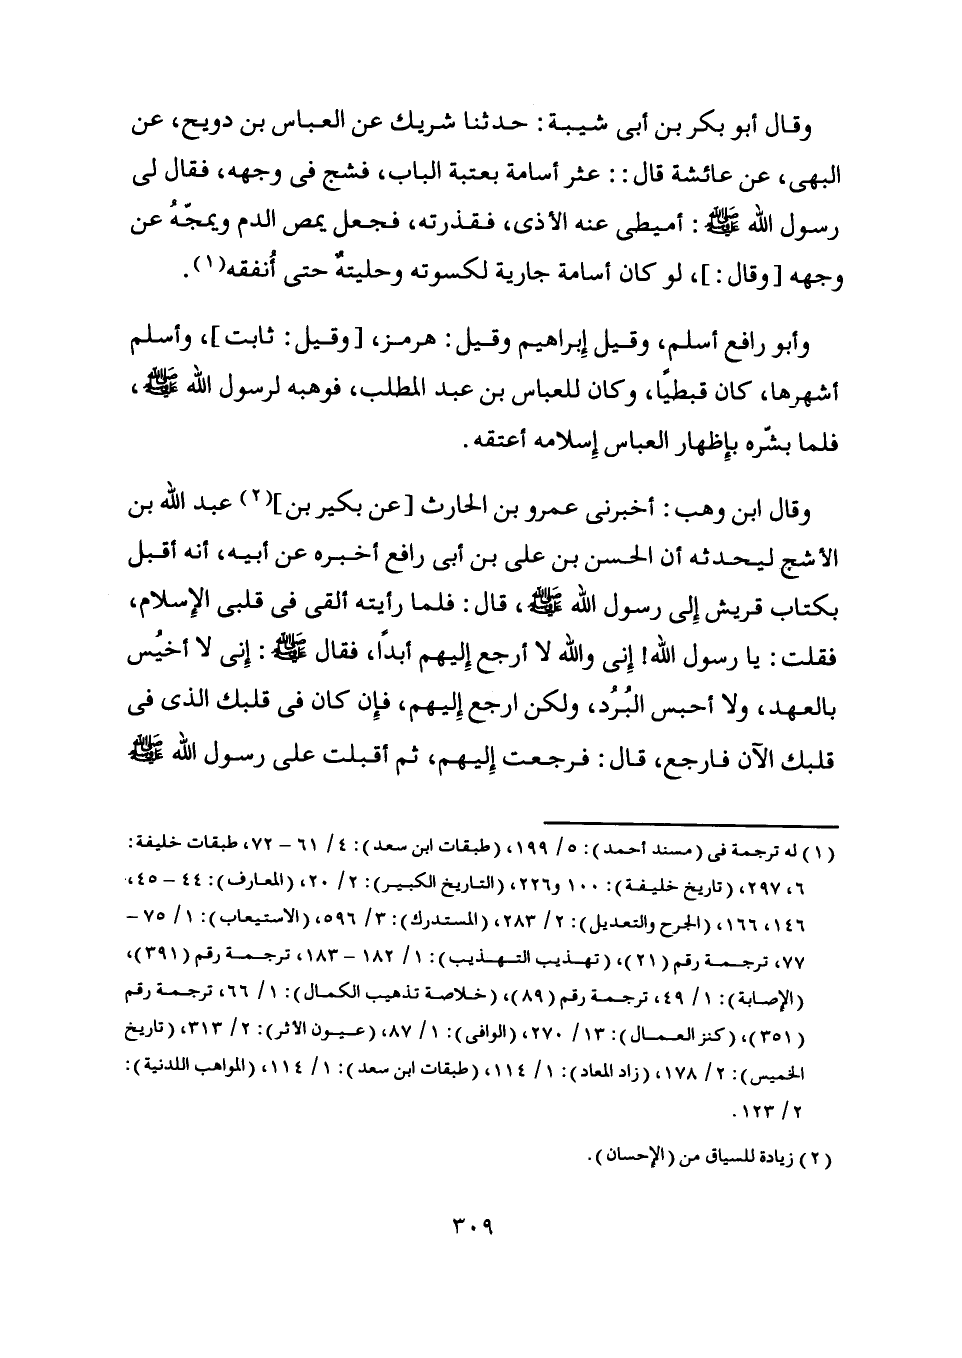 وقال أبو بكر بن أبى شيبة: حدثنا شريك عن العباس بن دويح، عن
البهى، عن عائشة قال:: عثر أسامة بعتبة الباب، فشج فى وجهه، فقال لى
رسول الله ﷺ: أميطى عنه الأذى، فقذرته، فجعل يمص الدم ويمجّهُ عن
وجهه [وقال:]، لو كان أسامة جارية لكسوته وحليتهٌ حتى أُنفقه(١).
وأبو رافع أسلم، وقيل إبراهيم وقيل: هرمز، [وقيل: ثابت]، وأسلم
أشهرها، كان قبطيًا، وكان للعباس بن عبد المطلب، فوهبه لرسول الله ﷺ،
فلما بشّره بإظهار العباس إسلامه أعتقه.
وقال ابن وهب: أخبرنى عمرو بن الحارث [عن بكير بن](٢) عبد الله بن
الأشج ليحدثه أن الحسن بن على بن أبى رافع أخبره عن أبيه، أنه أقبل
بكتاب قريش إلى رسول الله ﷺ، قال: فلما رأيته ألقى فى قلبى الإسلام،
فقلت: يا رسول الله! إنى والله لا أرجع إليهم أبدًا، فقال ﷺ: إنى لا أخيُس
بالعهد، ولا أحبس البُرُد، ولكن ارجع إليهم، فإن كان فى قلبك الذى فى
قلبك الآن فارجع، قال: فرجعت إليهم، ثم أقبلت على رسول الله ﷺ
(١) له ترجمة فى (مسند أحمد): ٥/ ١٩٩، (طبقات ابن سعد): ٤/ ٦١ – ٧٢، طبقات خليفة:
٦، ٢٩٧، (تاريخ خليفة): ١٠٠ و٢٢٦، (التاريخ الكبير): ٢/ ٢٠، (المعارف): ٤٤ – ٤٥،
١٤٦، ١٦٦، (الجرح والتعديل): ٢/ ٢٨٣، (المستدرك): ٣/ ٥٩٦، (الاستيعاب): ١/ ٧٥ –
٧٧، ترجمة رقم (٢١)، (تهذيب التهذيب): ١/ ١٨٢ – ١٨٣، ترجمة رقم (٣٩١)،
(الإصابة): ١/ ٤٩، ترجمة رقم (٨٩)، (خلاصة تذهيب الكمال): ١/ ٦٦، ترجمة رقم
(٣٥١)، (كنز العمال): ١٣/ ٢٧٠، (الوافى): ١/ ٨٧، (عيون الأثر): ٢/ ٣١٣، (تاريخ
الخميس): ٢/ ١٧٨، (زاد المعاد): ١/ ١١٤، (طبقات ابن سعد): ١/ ١١٤، (المواهب اللدنية):
٢/ ١٢٣.
(٢) زيادة للسياق من (الإحسان).
٣٠٩